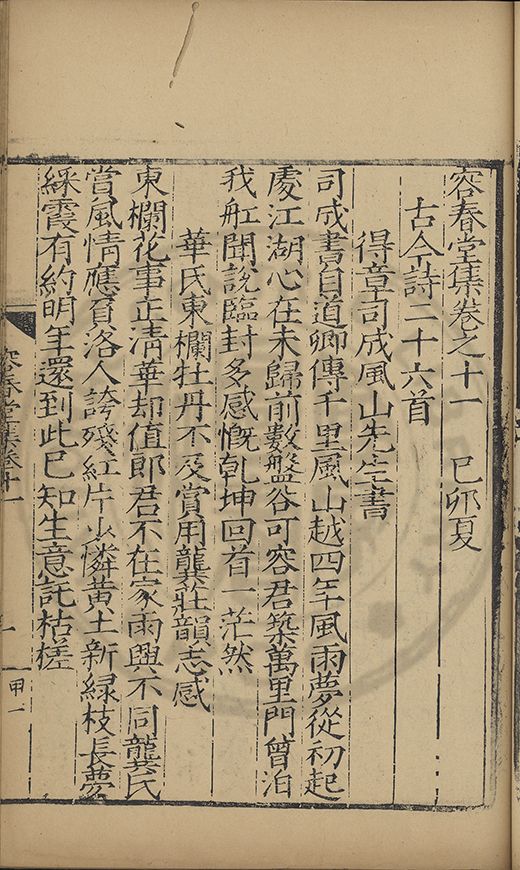 容春堂集卷之十一 己卯夏
古今詩二十六首
得章司成風山先生書
司成書自道卿傳千里風山越四年風雨夢從初起
處江湖心在未歸前數盤谷可容君築萬里門曾泊
我舡聞說臨封多感慨乾坤回首一茫然
華氏東欄牡丹不及賞用龔莊韻志感
東欄花事正清華却值郎君不在家雨興不同龔氏
嘗風情應賓洛人誇殘紅片少憐黃土新綠枝長夢
綵霞有約明年還到此已知生意託枯槎
容春堂集卷十一
一
甲一